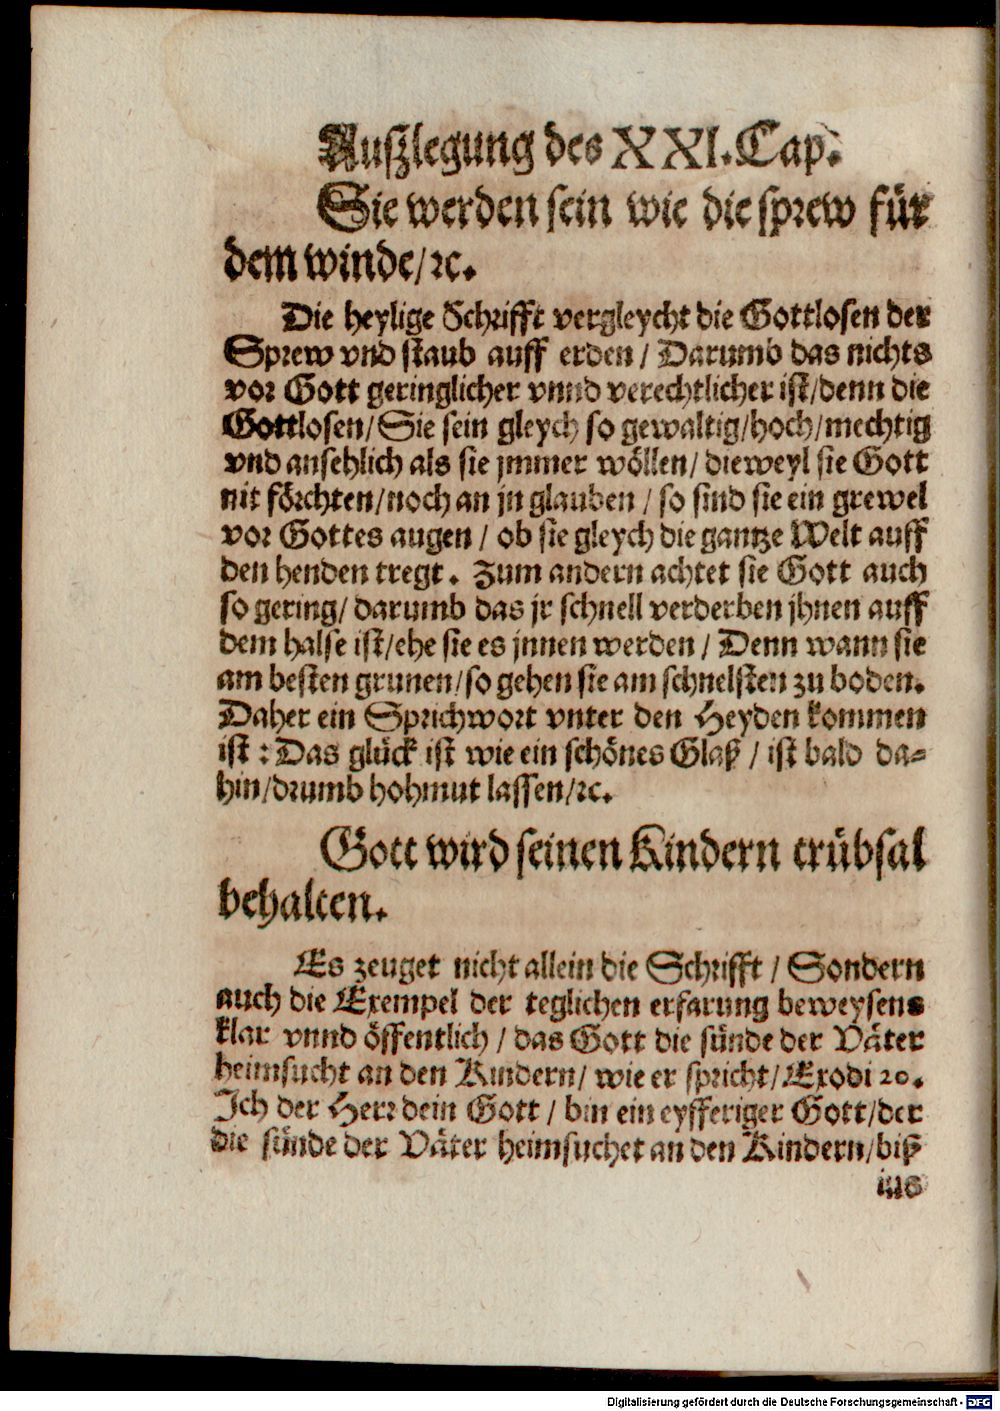 Auſzlegung des XXI. Cap.
Sie werden sein wie die sprew für
dem winde/ ꝛc.
Die heylige Schrifft vergleycht die Gottlosen der
Sprew vnd staub auff erden / Darumb das nichts
vor Gott geringlicher vnnd verechtlicher ist/denn die
Gottlosen/ Sie sein gleych so gewaltig/hoch/mechtig
vnd ansehlich als sie jmmer wöllen/ dieweyl sie Gott
nit förchten/noch an jn glauben / so sind sie ein grewel
vor Gottes augen / ob sie gleych die gantze Welt auff
den henden tregt. Zum andern achtet sie Gott auch
so gering/ darumb das jr schnell verderben jhnen auff
dem halse ist/ehe sie es jnnen werden / Denn wann sie
am besten grunen/so gehen sie am schnelsten zu boden.
Daher ein Sprichwort vnter den Heyden kommen
ist : Das glück ist wie ein schönes Glaß / ist bald da-
hin/drumb hohmut lassen/ꝛc.
Gott wird seinen Kindern trübsal
behalten.
Es zeuget nicht allein die Schrifft / Sondern
auch die Exempel der teglichen erfarung beweysens
klar vnnd öffentlich / das Gott die sünde der Väter
heimsucht an den Kindern/ wie er spricht/ Exodi 20.
Ich der Herr dein Gott / bin ein eyfferiger Gott/der
die sünde der Väter heimsuchet an den Kindern/biß
ins
Digitalisierung gefördert durch die Deutsche Forschungsgemeinschaft - DFG